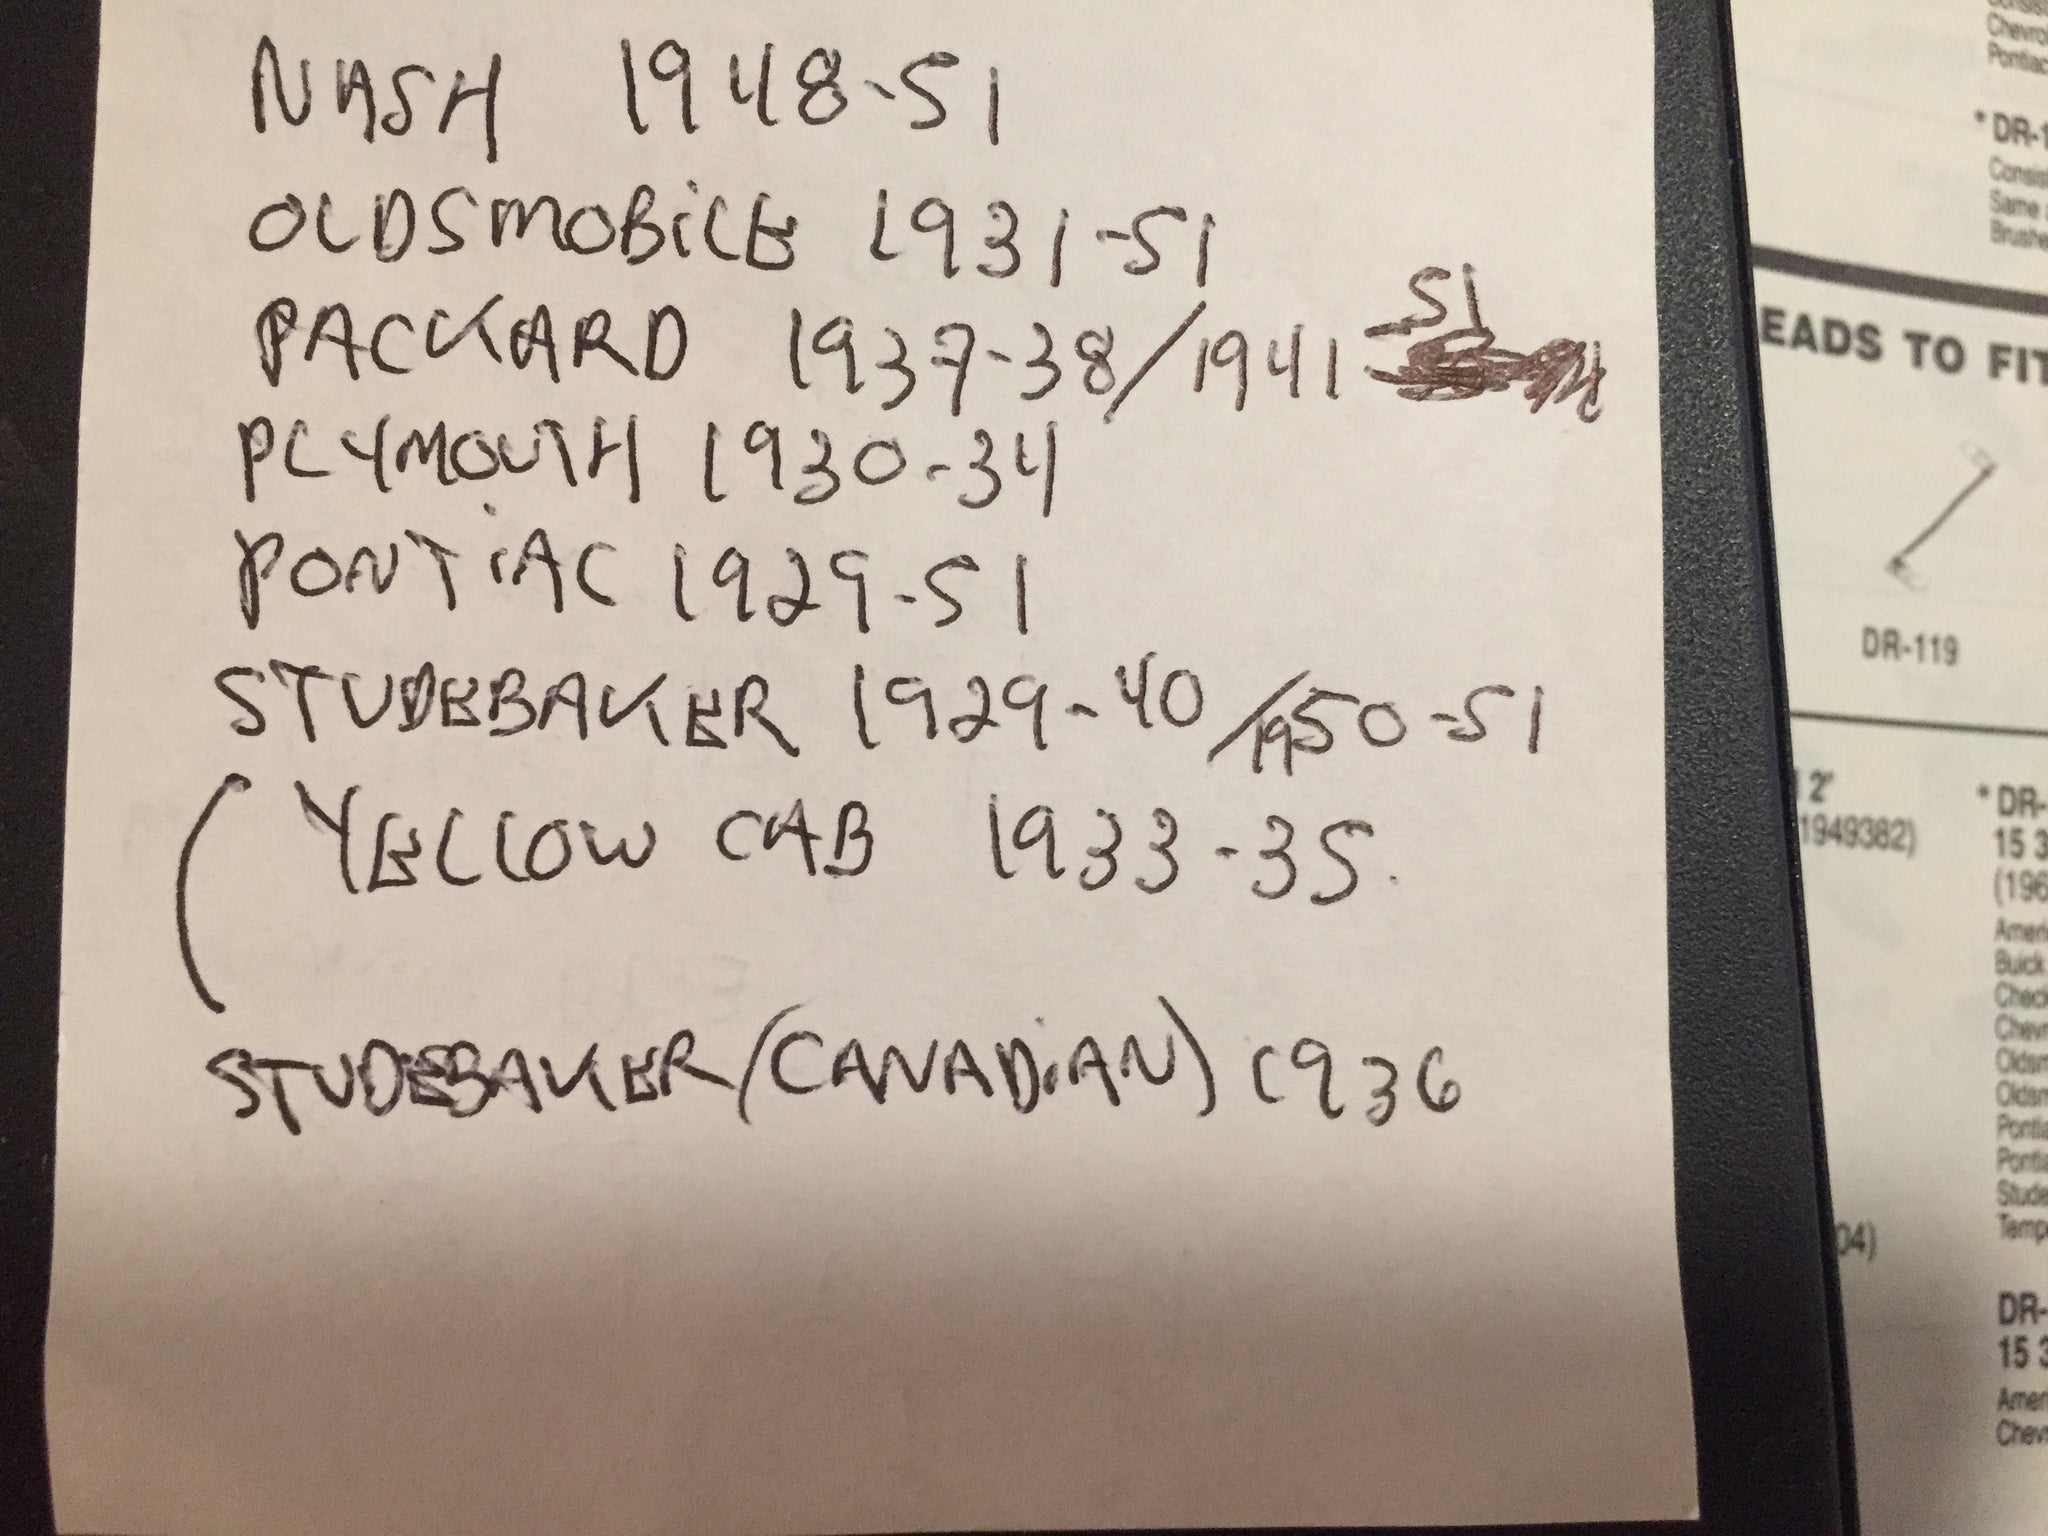 NASH 1948-51
OLDSMOBILE 1931-51
PACKARD 1937-38/1941-51
PLYMOUTH 1930-34
PONTIAC 1929-51
STUDEBAKER 1929-40/1950-51
(YELLOW CAB 1933-35.
STUDEBAKER (CANADIAN) 1936
Chevro
Pontiac
* DR-1
Consis
Same
Brushe
EADS TO FIT
DR-119
2"
1949382)
04)
* DR-
15 3
(196
Ameri
Buick
Check
Chevr
Oldsm
Oldsm
Pontia
Pontia
Stude
Temp
DR-
15 3
Amer
Chev